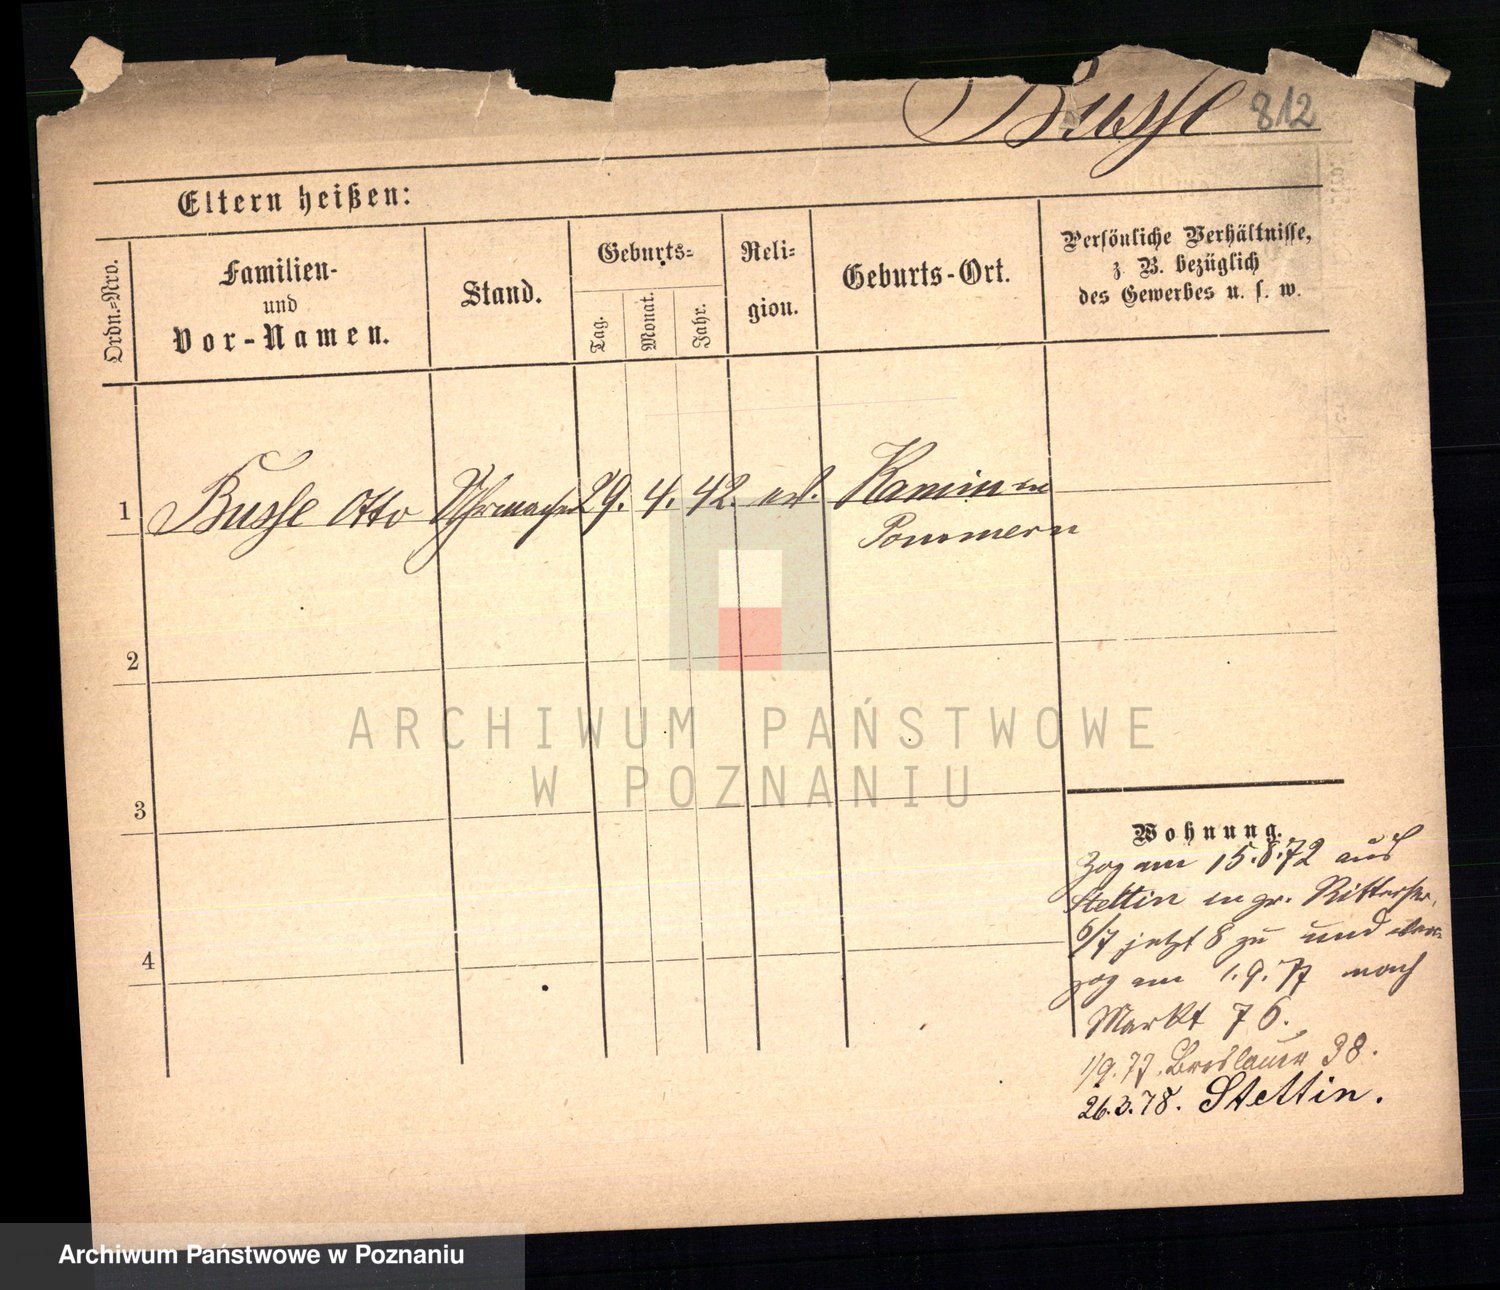 Busse 812
Eltern heißen:
Ordn.=Nro.
Familien-
und
Vor-Namen.
Stand.
Geburts=
Tag.
Monat.
Jahr.
Reli=
gion.
Geburts-Ort.
Persönliche Verhältnisse,
z. B. bezüglich
des Gewerbes u. s. w.
1 Busse Otto Uhrmacher 29. 4. 42. ev. Kammin in
Pommern
2
3
4
Wohnung.
Zog am 15.8.72 aus
Stettin in gr. Ritterstr.
6/7 jetzt 8 zu und ver=
zog am 1.9.77 nach
Markt 76.
1/9.77. Breslauer 38.
26.3.78. Stettin.
ARCHIWUM PAŃSTWOWE
W POZNANIU
Archiwum Państwowe w Poznaniu